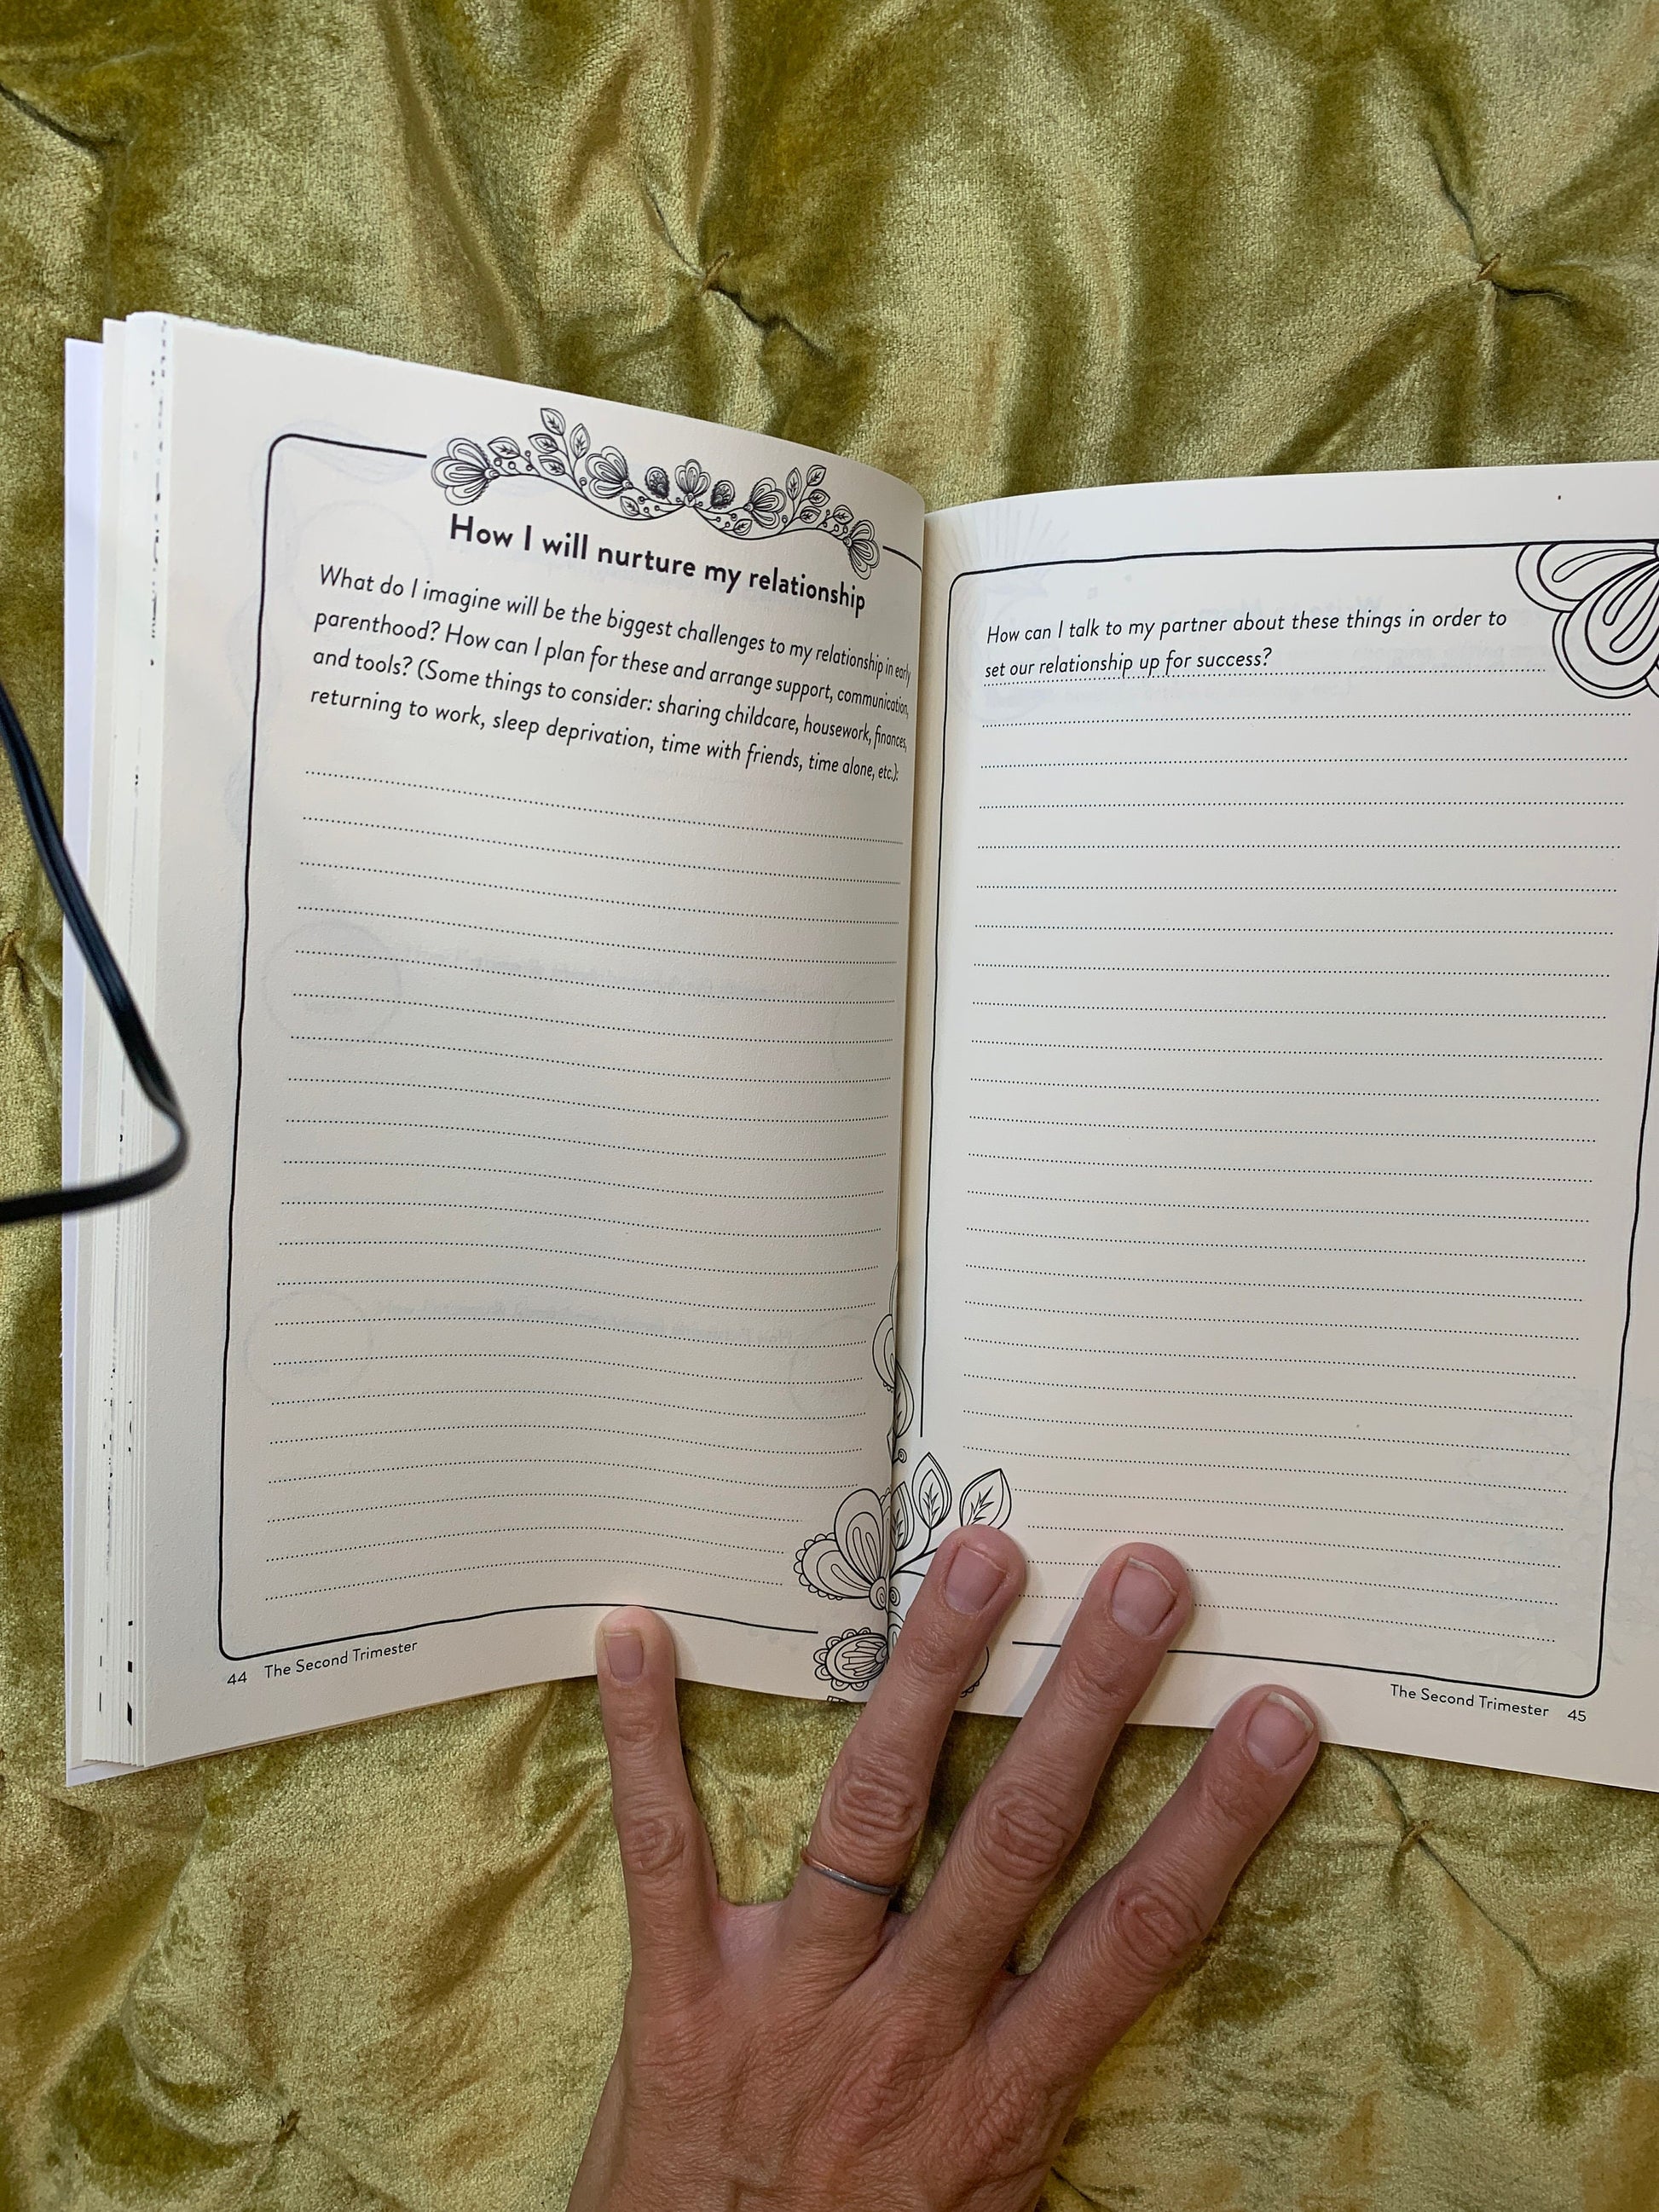 How I will nurture my relationship
What do I imagine will be the biggest challenges to my relationship in early
parenthood? How can I plan for these and arrange support, communication,
and tools? (Some things to consider: sharing childcare, housework, finances,
returning to work, sleep deprivation, time with friends, time alone, etc.):
44 The Second Trimester
How can I talk to my partner about these things in order to
set our relationship up for success?
The Second Trimester 45